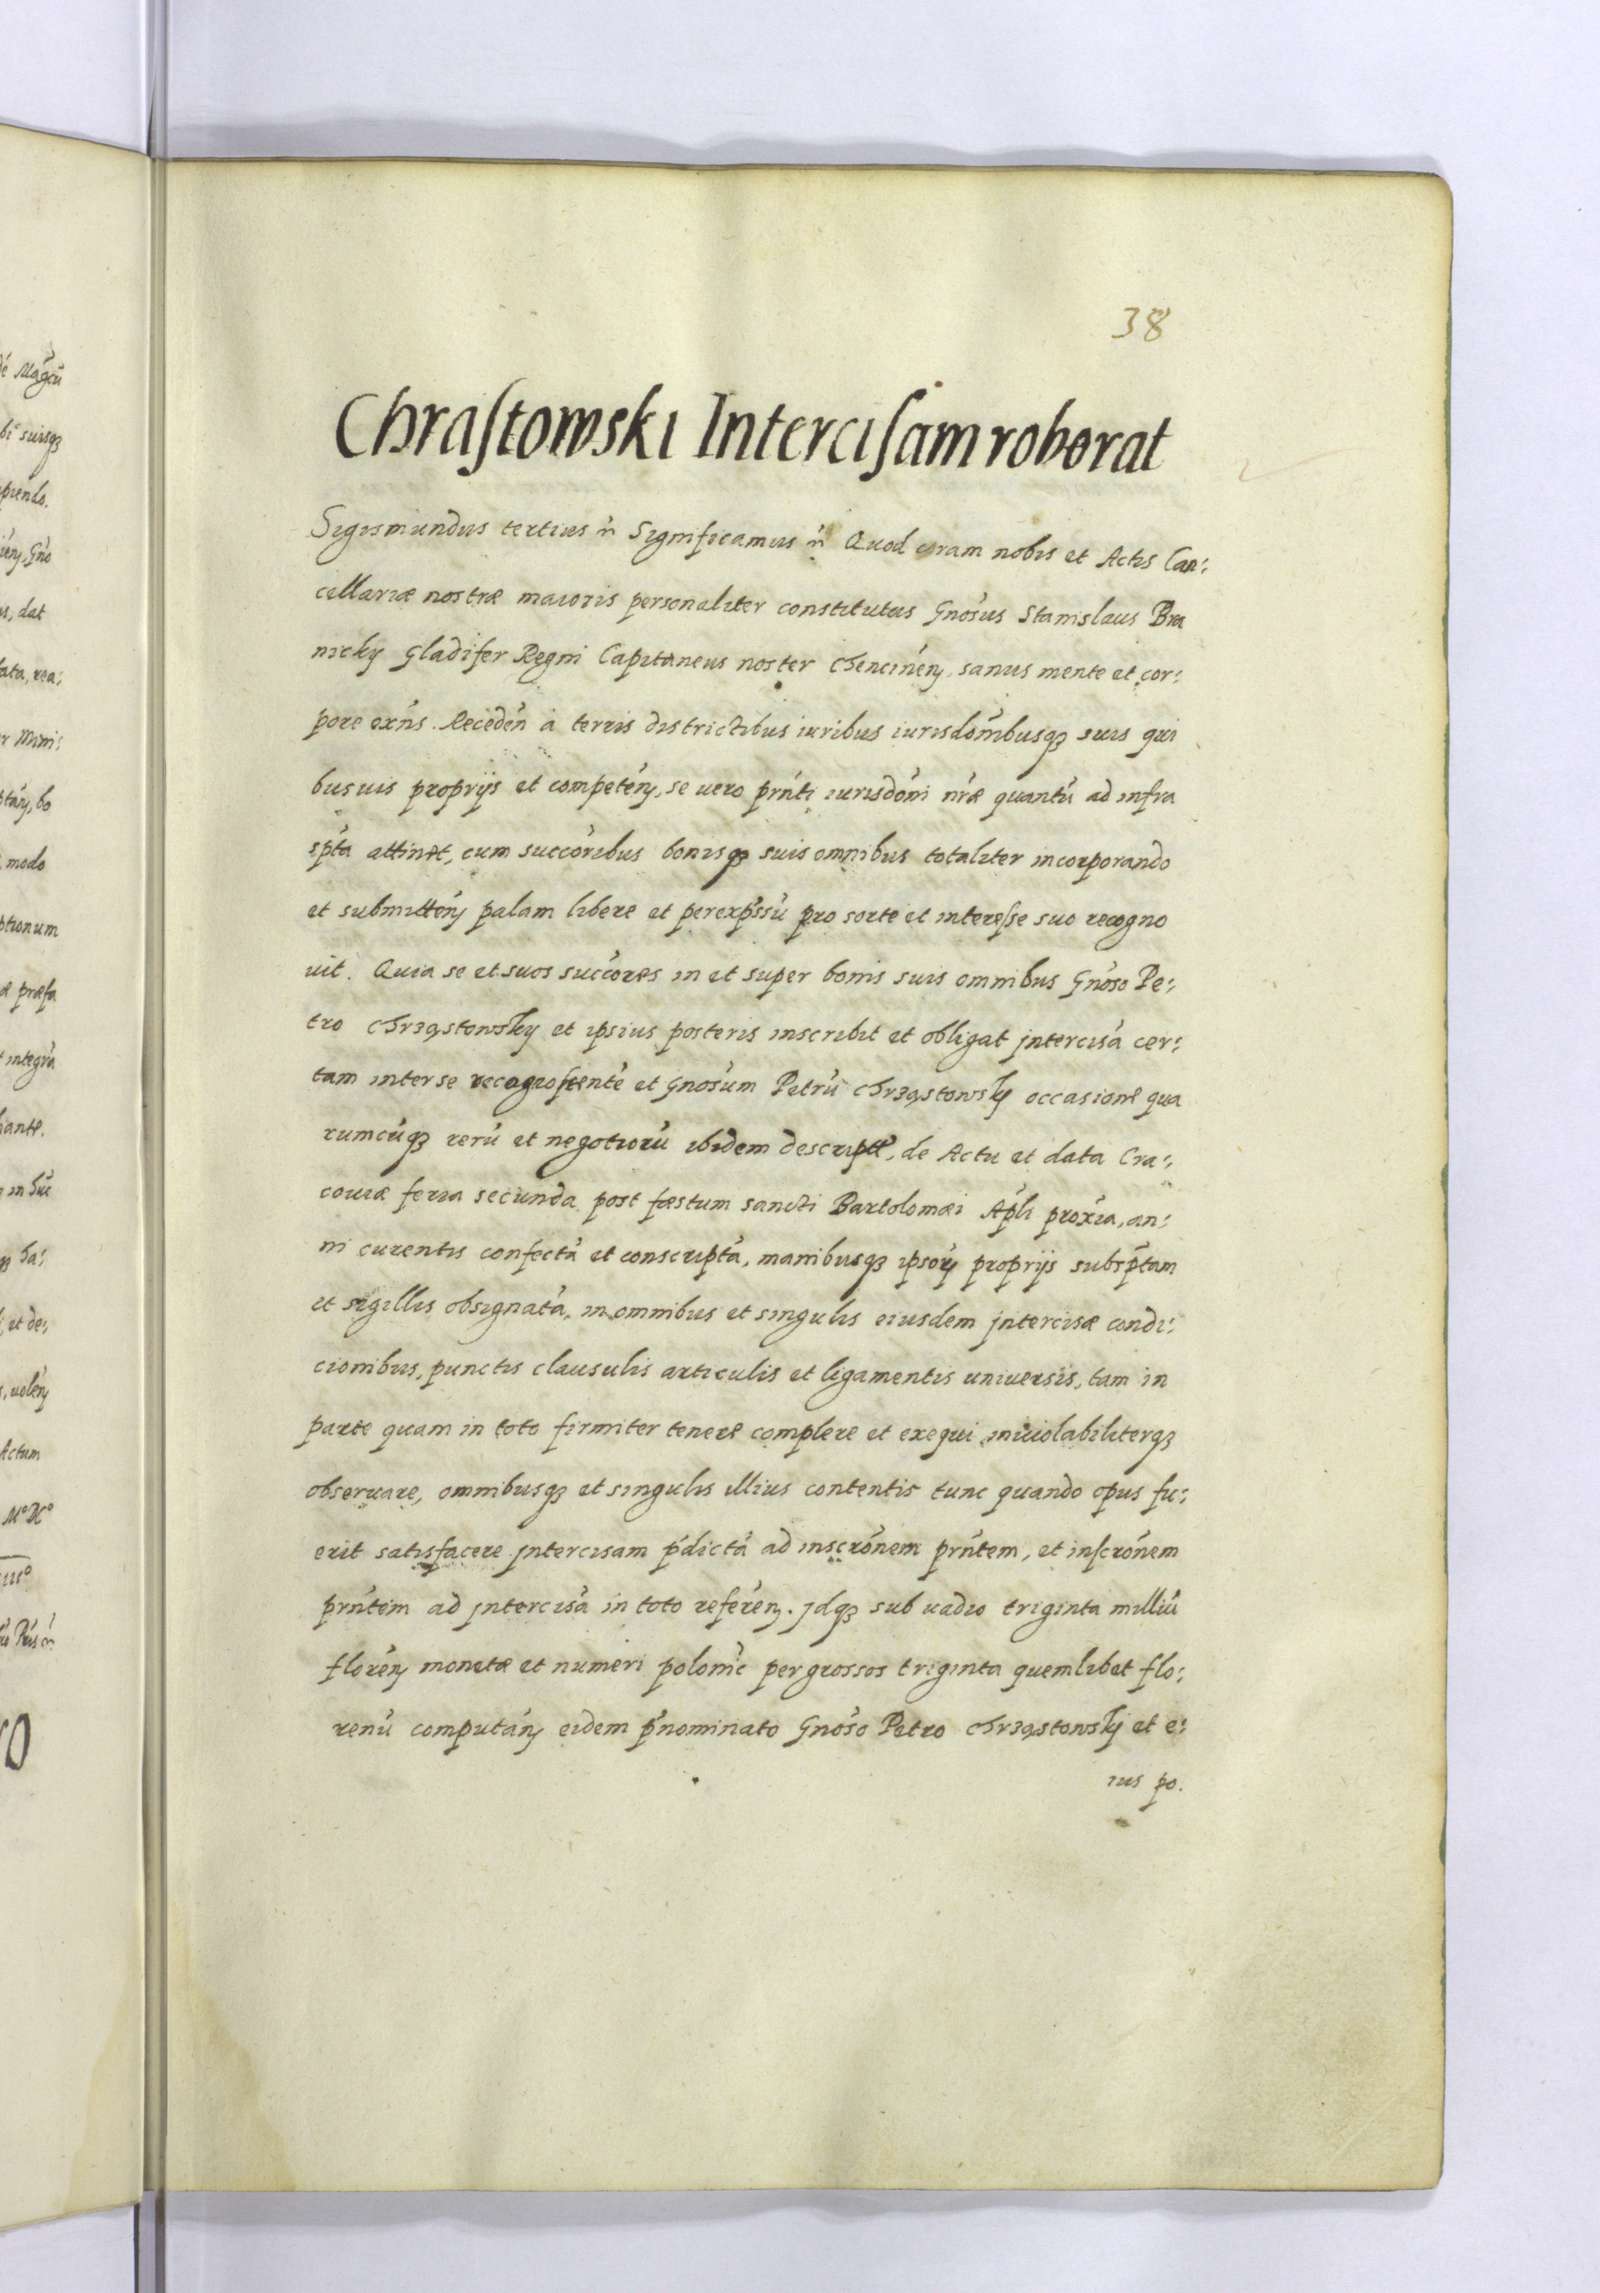 38
Chrastowski Intercisam roborat
Sigismundus tertius ñ Significamus ñ Quod coram nobis et Actis Can:
cellariæ nostræ maioris personaliter constitutus Gnosus Stanislaus Bra
nicky Gladifer Regni Capitaneus noster Chencinen, sanus mente et cor:
pore exñs. Receden à terris districtibus iuribus iurisdonibusq3 suis qui
busuis proprijs et competen, se uero prnti iurisdoni nræ quantũ ad infra
spta attinet, cum succoribus bonisq3 suis omnibus totaliter incorporando
et submitten palam libere et perexpssũ pro sorte et interesse suo recogno
uit. Quia se et suos succores in et super bonis suis omnibus Gnoso Pe:
tro Chrząstowsky et ipsius posteris inscribit et obligat jntercisã cer:
tam inter se recognoscentẽ et Gnosum Petrũ Chrząstowsky occasione qua
rumcũq3 rerũ et negotiorũ ibidem descript, de Actu et data Cra:
couiæ feria secunda post fæstum sancti Bartolomæi Apli proxia, an:
ni curentis confectã et conscriptã, manibusq3 ipsorũ proprijs subsptam
et sigillis obsignatã, in omnibus et singulis eiusdem jntercisæ condi:
cionibus, punctis clausulis articulis et ligamentis uniuersis, tam in
parte quam in toto firmiter tenere complere et exequi inuiolabiliterq3
obseruare, omnibusq3 et singulis illius contentis tunc quando opus fu:
erit satisfacere jntercisam pdictã ad inscronem prntem, et inscronem
prntem ad jntercisã in toto referen. jdq3 sub uadio triginta milliũ
floren monetæ et numeri polonic per grossos triginta quemlibet flo:
renũ computan eidem pnominato Gnoso Petro Chrząstowskj et e:
ius po.